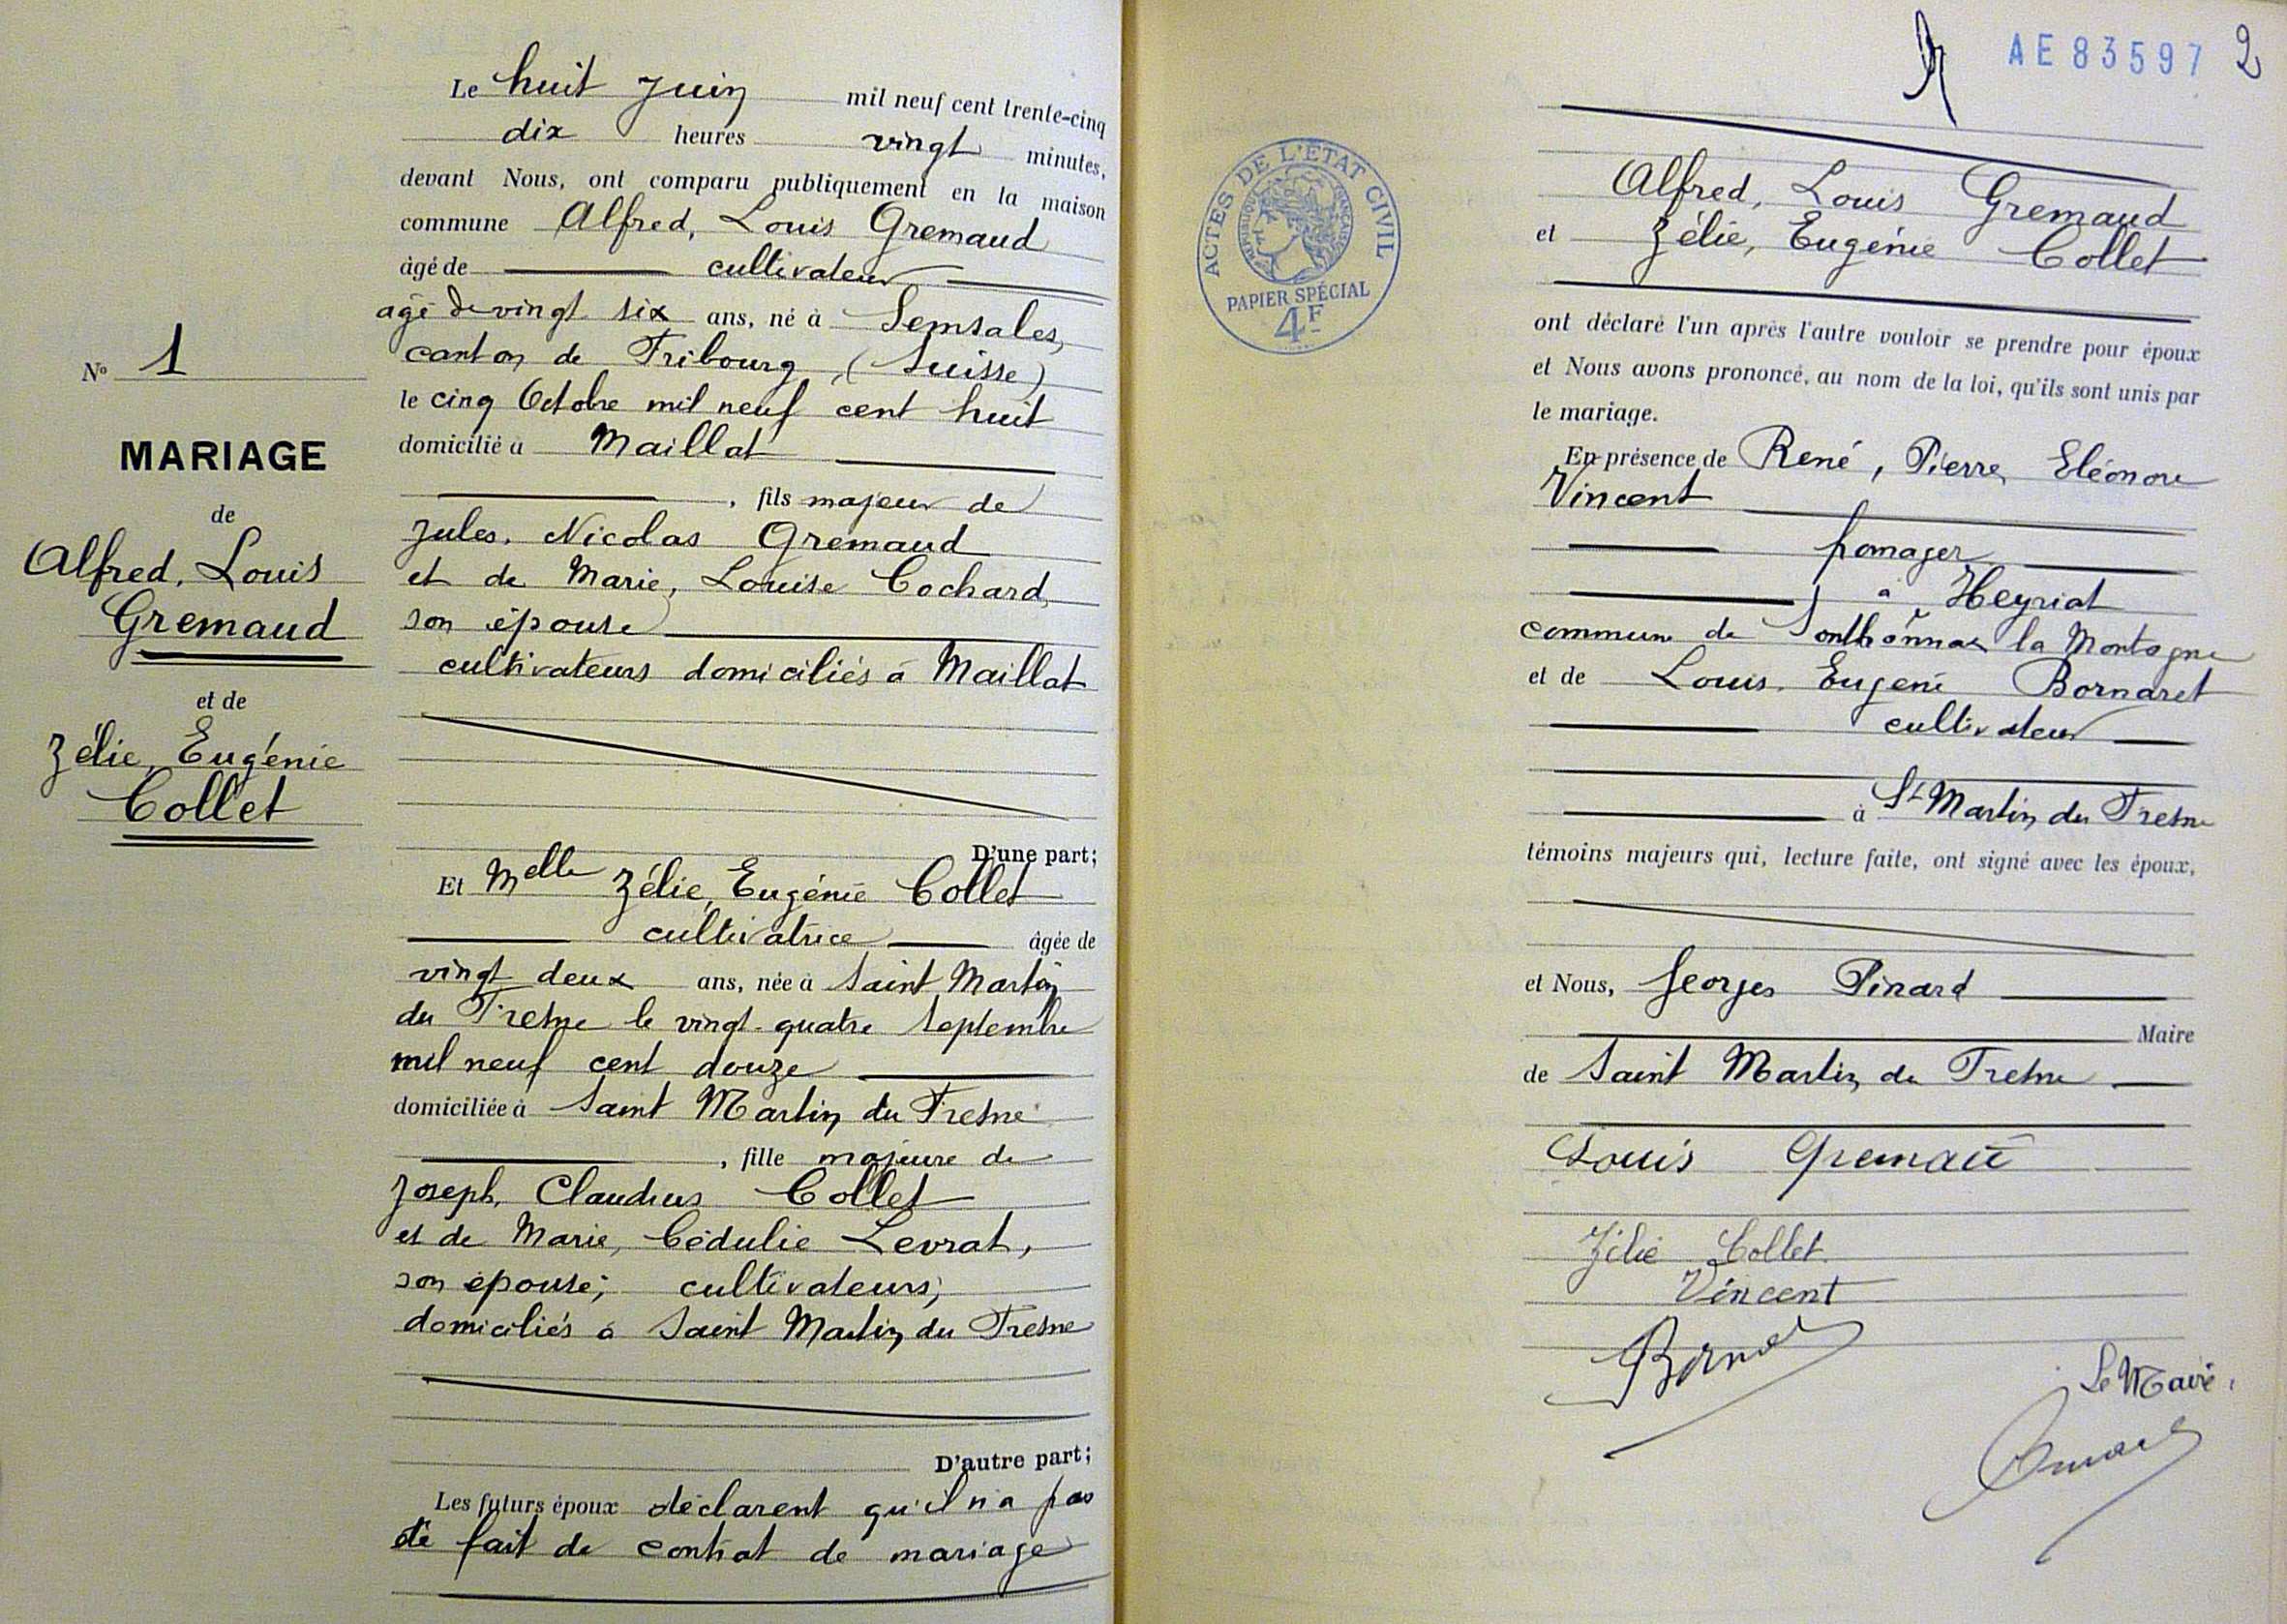 N° 1
MARIAGE
de
Alfred, Louis
Gremaud
et de
Zélie, Eugénie
Collet
Le huit Juin mil neuf cent trente-cinq
dix heures vingt minutes,
devant Nous, ont comparu publiquement en la maison
commune Alfred, Louis Gremaud
âgé de cultivateur
agé de vingt six ans, né à Semsales,
canton de Fribourg, (Suisse)
le cinq Octobre mil neuf cent huit
domicilié à Maillat
, fils majeur de
Jules, Nicolas Gremaud
et de Marie, Louise Cochard,
son épouse
cultivateurs domiciliés à Maillat
D'une part;
Et Melle Zélie, Eugénie Collet
cultivatrice âgée de
vingt deux ans, née à Saint Martin
du Fresne le vingt-quatre Septembre
mil neuf cent douze
domiciliée à Saint Martin du Fresne
, fille majeure de
Joseph, Claudius Collet
et de Marie, Cédulie Levrat,
son épouse; cultivateurs;
domiciliés à Saint Martin du Fresne
D'autre part;
Les futurs époux déclarent qu'il n'a pas
été fait de contrat de mariage
AE 83597 2
ACTES DE L'ÉTAT CIVIL
RÉPUBLIQUE FRANÇAISE
PAPIER SPÉCIAL
4F
Alfred, Louis Gremaud
et Zélie, Eugénie Collet
ont déclaré l'un après l'autre vouloir se prendre pour époux
et Nous avons prononcé, au nom de la loi, qu'ils sont unis par
le mariage.
En présence de René, Pierre, Eléonore
Vincent
fromager
à Heyriat
commune de Sonthonnax la Montagne
et de Louis, Eugène Bornaret
cultivateur
à St Martin du Fresne
témoins majeurs qui, lecture faite, ont signé avec les époux,
et Nous, Georges Pinard
Maire
de Saint Martin du Fresne
Louis Gremaud
Zélie Collet
Vincent
Le Maire,